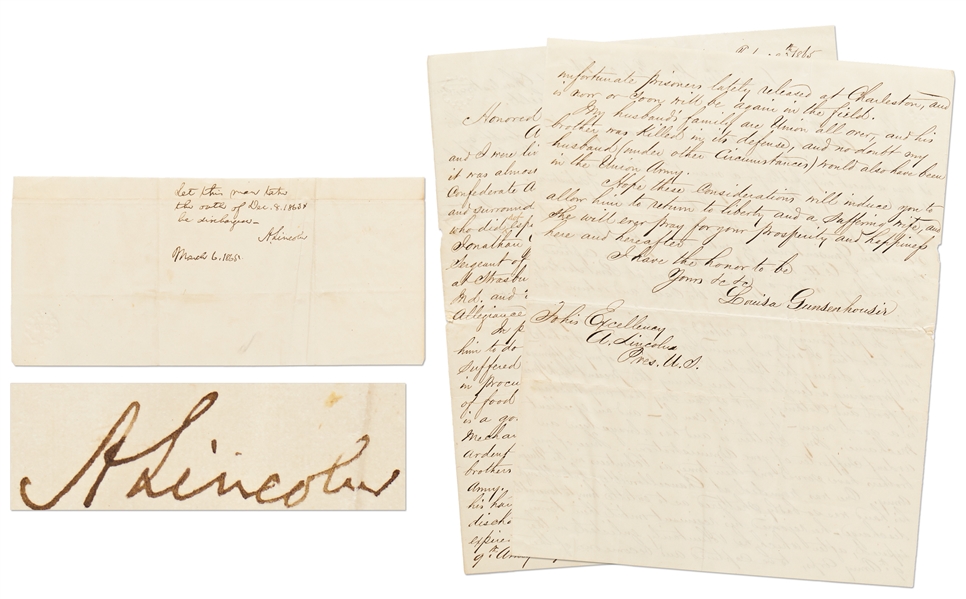 Let this man take
the oath of Dec. 8. 1863 &
be discharged—
A. Lincoln
March 6. 1865.
A. Lincoln
1865
Honored
A
and I were liv
it was almos
Confederate A
and surround
who did
Jonathan
Sergeant of
at Strasbu
Md. and
Allegiance
In p
him to do
suffered
in procu
of food
is a go
Mecha
ardent
brothers
Army.
his ha
discha
expire
9th Army
unfortunate prisoners lately released at Charleston, and
is now or soon will be again in the field.
My husband's family are Union all over, and his
brother was killed in its defense, and no doubt my
husband (under other Circumstances) would also have been
in the Union Army.
Hope these Considerations will induce you to
allow him to return to liberty and a suffering wife, and
she will ever pray for your prosperity and happiness
here and hereafter
I have the honor to be
Yours &c &c
Louisa Gunsenhouser
To his Excellency
A. Lincoln
Pres. U.S.